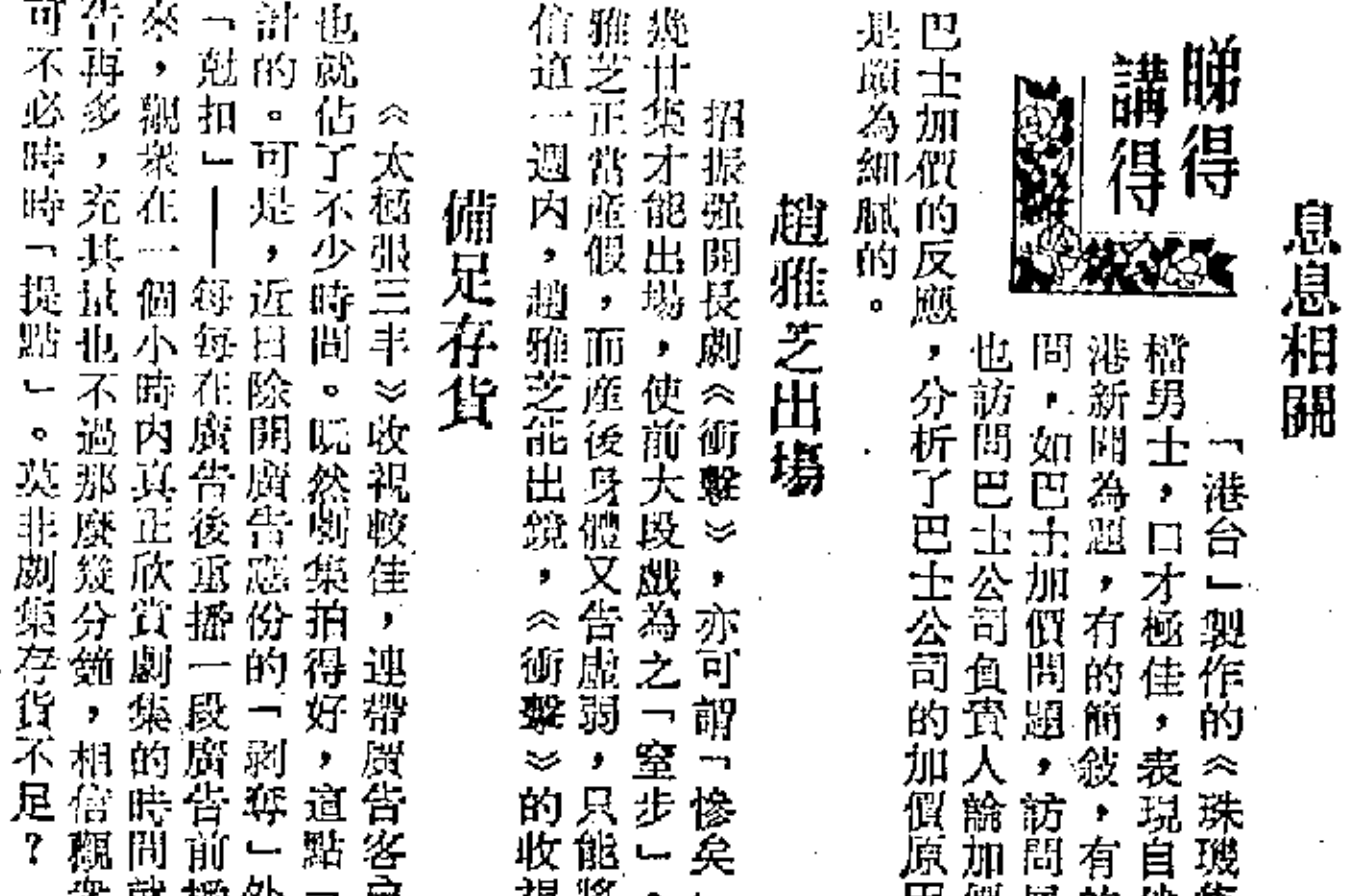 息息相關
睇得
講得
「港台」製作的《珠璣
檔男士，口才極佳，表現自
港新聞為題，有的簡敍，有的
問，如巴士加價問題，訪問
也訪問巴士公司負責人論加價
巴士加價的反應，分析了巴士公司的加價原因
是頗為細膩的。
趙雅芝出場
招振强開長劇《衝擊》，亦可謂「慘矣
幾廿集才能出場，使前大段戲為之「窒步」。
雅芝正當產假，而產後身體又告虛弱，只能將
信這一週内，趙雅芝能出鏡，《衝擊》的收視
備足存貨
《太極張三丰》收視較佳，連帶廣告客户
也就佔了不少時間。既然劇集拍得好，這點
計的。可是，近日除開廣告應份的「剥奪」外
「尅扣」——每每在廣告後重播一段廣告前播
來，觀衆在一個小時内真正欣賞劇集的時間就
告再多，充其量也不過那麼幾分鐘，相信觀衆
可不必時時「提點」。莫非劇集存貨不足？